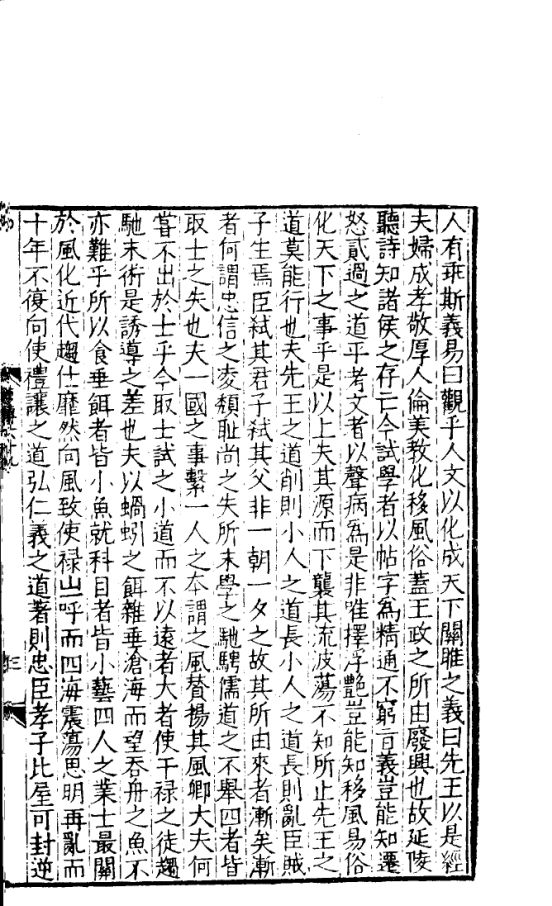 人有乖斯義易曰觀乎人文以化成天下關雎之義曰先王以是經
夫婦成孝敬厚人倫美教化移風俗蓋王政之所由廢興也故延陵
聽詩知諸侯之存亡今試學者以帖字為精通不窮旨義豈能知遷
怒貳過之道乎考文者以聲病為是非唯擇浮艷豈能知移風易俗
化天下之事乎是以上失其源而下襲其流波蕩不知所止先王之
道莫能行也夫先王之道削則小人之道長小人之道長則亂臣賊
子生焉臣弒其君子弒其父非一朝一夕之故其所由來者漸矣漸
者何謂忠信之凌頹耻尚之失所末學之馳騁儒道之不舉四者皆
取士之失也夫一國之事繫一人之本謂之風賛揚其風卿大夫何
甞不出於士乎今取士試之小道而不以遠者大者使干禄之徒趨
馳末術是誘導之差也夫以蝸蚓之餌雜垂滄海而望吞舟之魚不
亦難乎所以食垂餌者皆小魚就科目者皆小藝四人之業士最關
於風化近代趨仕靡然向風致使禄山一呼而四海震蕩思明再亂而
十年不復向使禮讓之道弘仁義之道著則忠臣孝子比屋可封逆